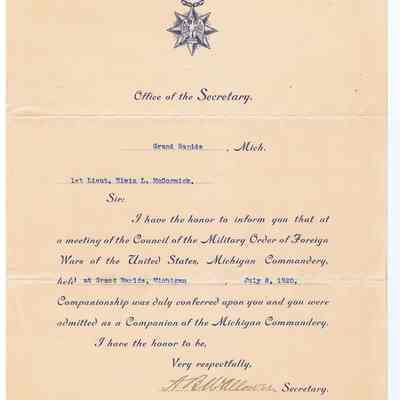 Office of the Secretary.
Grand Rapids , Mich.
1st Lieut. Elwin L. McCormick,
Sir:
I have the honor to inform you that at
a meeting of the Council of the Military Order of Foreign
Wars of the United States, Michigan Commandery,
held at Grand Rapids, Michigan July 8, 1920,
Companionship was duly conferred upon you and you were
admitted as a Companion of the Michigan Commandery.
I have the honor to be,
Very respectfully,
Secretary.